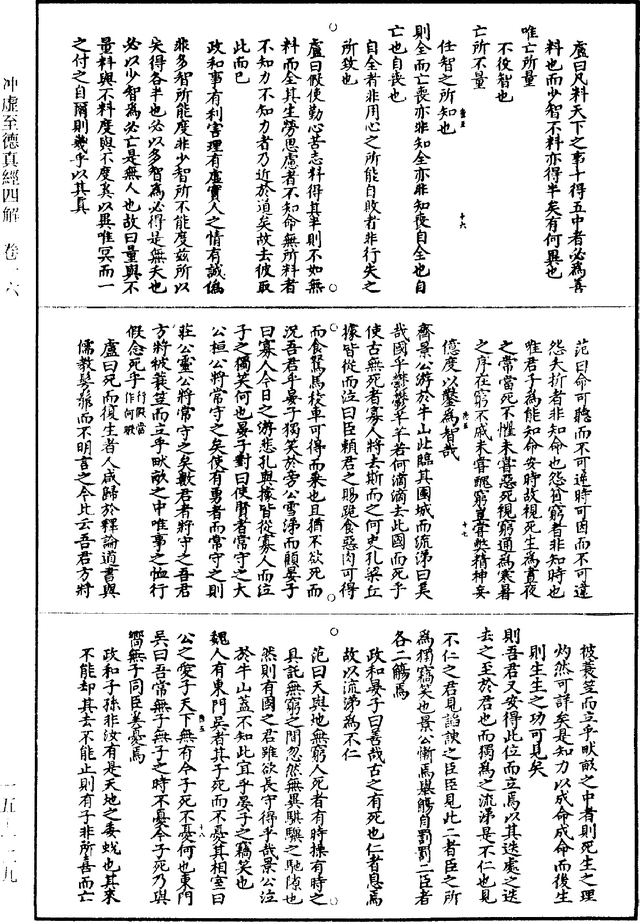 冲虛至德真經四解 卷一六
盧曰凡料天下之事十得五中者必為善
料也而少智不料亦得半矣有何異也
唯亡所量
不役智也
亡所不量
任智之所知也
則全而亡喪亦非知全亦非知喪自全也自
亡也自喪也
自全者非用心之所能自敗者非行失之
所致也
盧曰假使勤心苦志料得其半則不如無
料而全其生勞思慮者不知命無所料者
不知力不知力者乃近於道矣故去彼取
此而已
政和事有利害理有虛實人之情有誠偽
非多智所能度非少智所不能度茲所以
矣得各半也必以多智為必得是無天也
必以少智為必亡是無人也故曰量與不
量料與不料度與不度奚以異唯冥而一
之付之自爾則幾乎以其真
范曰命可聽而不可逆時可因而不可違
怨夭折者非知命也怨貧窮者非知時也
唯君子為能知命安時故視死生為晝夜
之常當死不懼未嘗惡死視窮通為寒暑
之序在窮不戚未嘗醜窮豈嘗弊精神妄
億度以鑿為智哉
齊景公游於牛山北臨其國城而流涕曰美
哉國乎鬱鬱芊芊若何滴滴去此國而死乎
使古無死者寡人將去斯而之何史孔梁丘
據皆從而泣曰臣賴君之賜疏食惡肉可得
而食駑馬稜車可得而乘也且猶不欲死而
況吾君乎晏子獨笑於旁公雪涕而顧晏子
曰寡人今日之游悲孔與據皆從寡人而泣
子之獨笑何也晏子對曰使賢者常守之則
公桓公將常守之矣使有勇者而常守之則
莊公靈公將常守之矣數君者將守之吾君
方將被蓑笠而立乎畎畝之中唯事之恤行
假念死乎行假當作何暇
盧曰死而復生者人咸歸於釋論道書與
儒教髣髴而不明言之今此云吾君方將
被蓑笠而立乎畎畝之中者則死生之理
灼然可詳矣是知力以成命成命而後生
則生生之功可見矣
則吾君又安得此位而立焉以其迭處之迭
去之至於君也而獨為之流涕是不仁也見
不仁之君見諂諛之臣臣見此二者臣之所
為獨竊笑也景公慚焉舉觴自罰罰二臣者
各二觴焉
政和晏子曰善哉古之有死也仁者息焉
故以流涕為不仁
范曰天與地無窮人死者有時操有時之
具託無窮之間忽然無異騏驥之馳隙也
然則有國之君雖欲長守得乎哉景公泣
於牛山蓋不知此宜乎晏子之竊笑也
魏人有東門吳者其子死而不憂其相室曰
公之愛子天下無有今子死不憂何也東門
吳曰吾常無子無子之時不憂今子死乃與
嚮無子同臣奚憂焉
政和子孫非汝有是天地之委蛻也其來
不能却其去不能止則有子非所喜而亡
一五—一二九